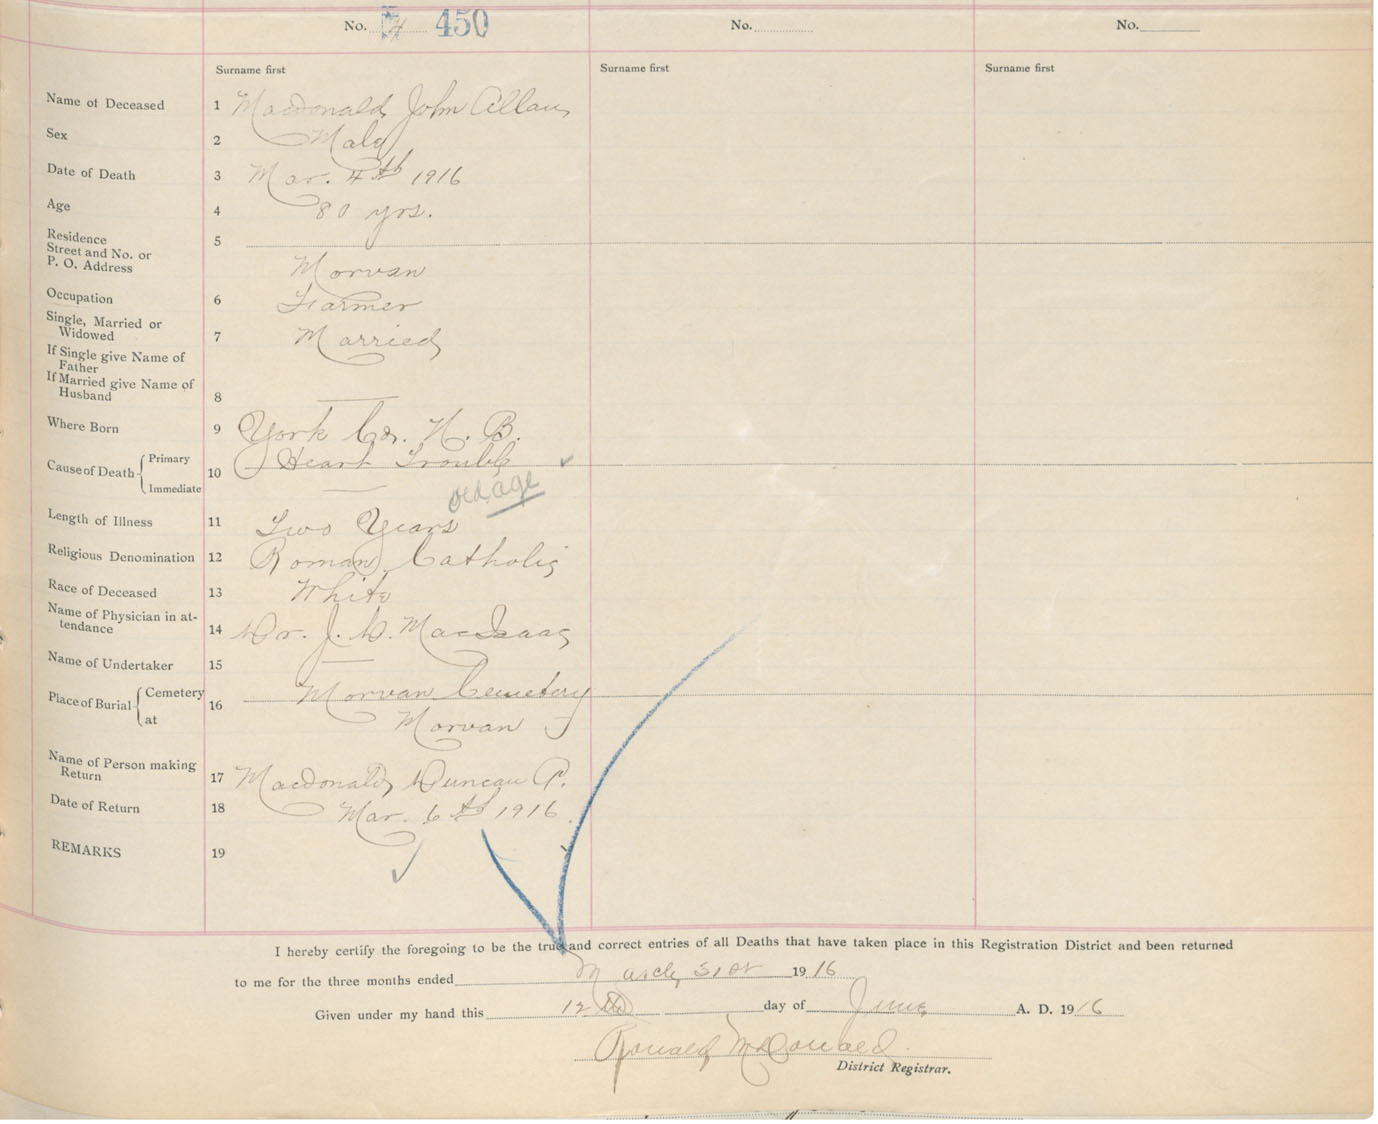 No. 4 450 No. No.
Surname first Surname first Surname first
Name of Deceased 1 Macdonald, John Allan
Sex 2 Male
Date of Death 3 Mar. 4th 1916
Age 4 80 yrs.
Residence 5
Street and No. or
P. O. Address Morvan
Occupation 6 Farmer
Single, Married or
Widowed 7 Married
If Single give Name of
Father
If Married give Name of
Husband 8 —
Where Born 9 York Co. N. B.
Cause of Death Primary 10 Heart Trouble
Immediate — old age
Length of Illness 11 Two Years
Religious Denomination 12 Roman Catholic
Race of Deceased 13 White
Name of Physician in at-
tendance 14 Dr. J. L. MacIsaac
Name of Undertaker 15 —
Place of Burial Cemetery 16 Morvan Cemetery
at Morvan
Name of Person making
Return 17 Macdonald, Duncan P.
Date of Return 18 Mar. 6th 1916.
REMARKS 19
I hereby certify the foregoing to be the true and correct entries of all Deaths that have taken place in this Registration District and been returned
to me for the three months ended March 31st 1916
Given under my hand this 12th day of June A. D. 1916
Ronald McDonald
District Registrar.